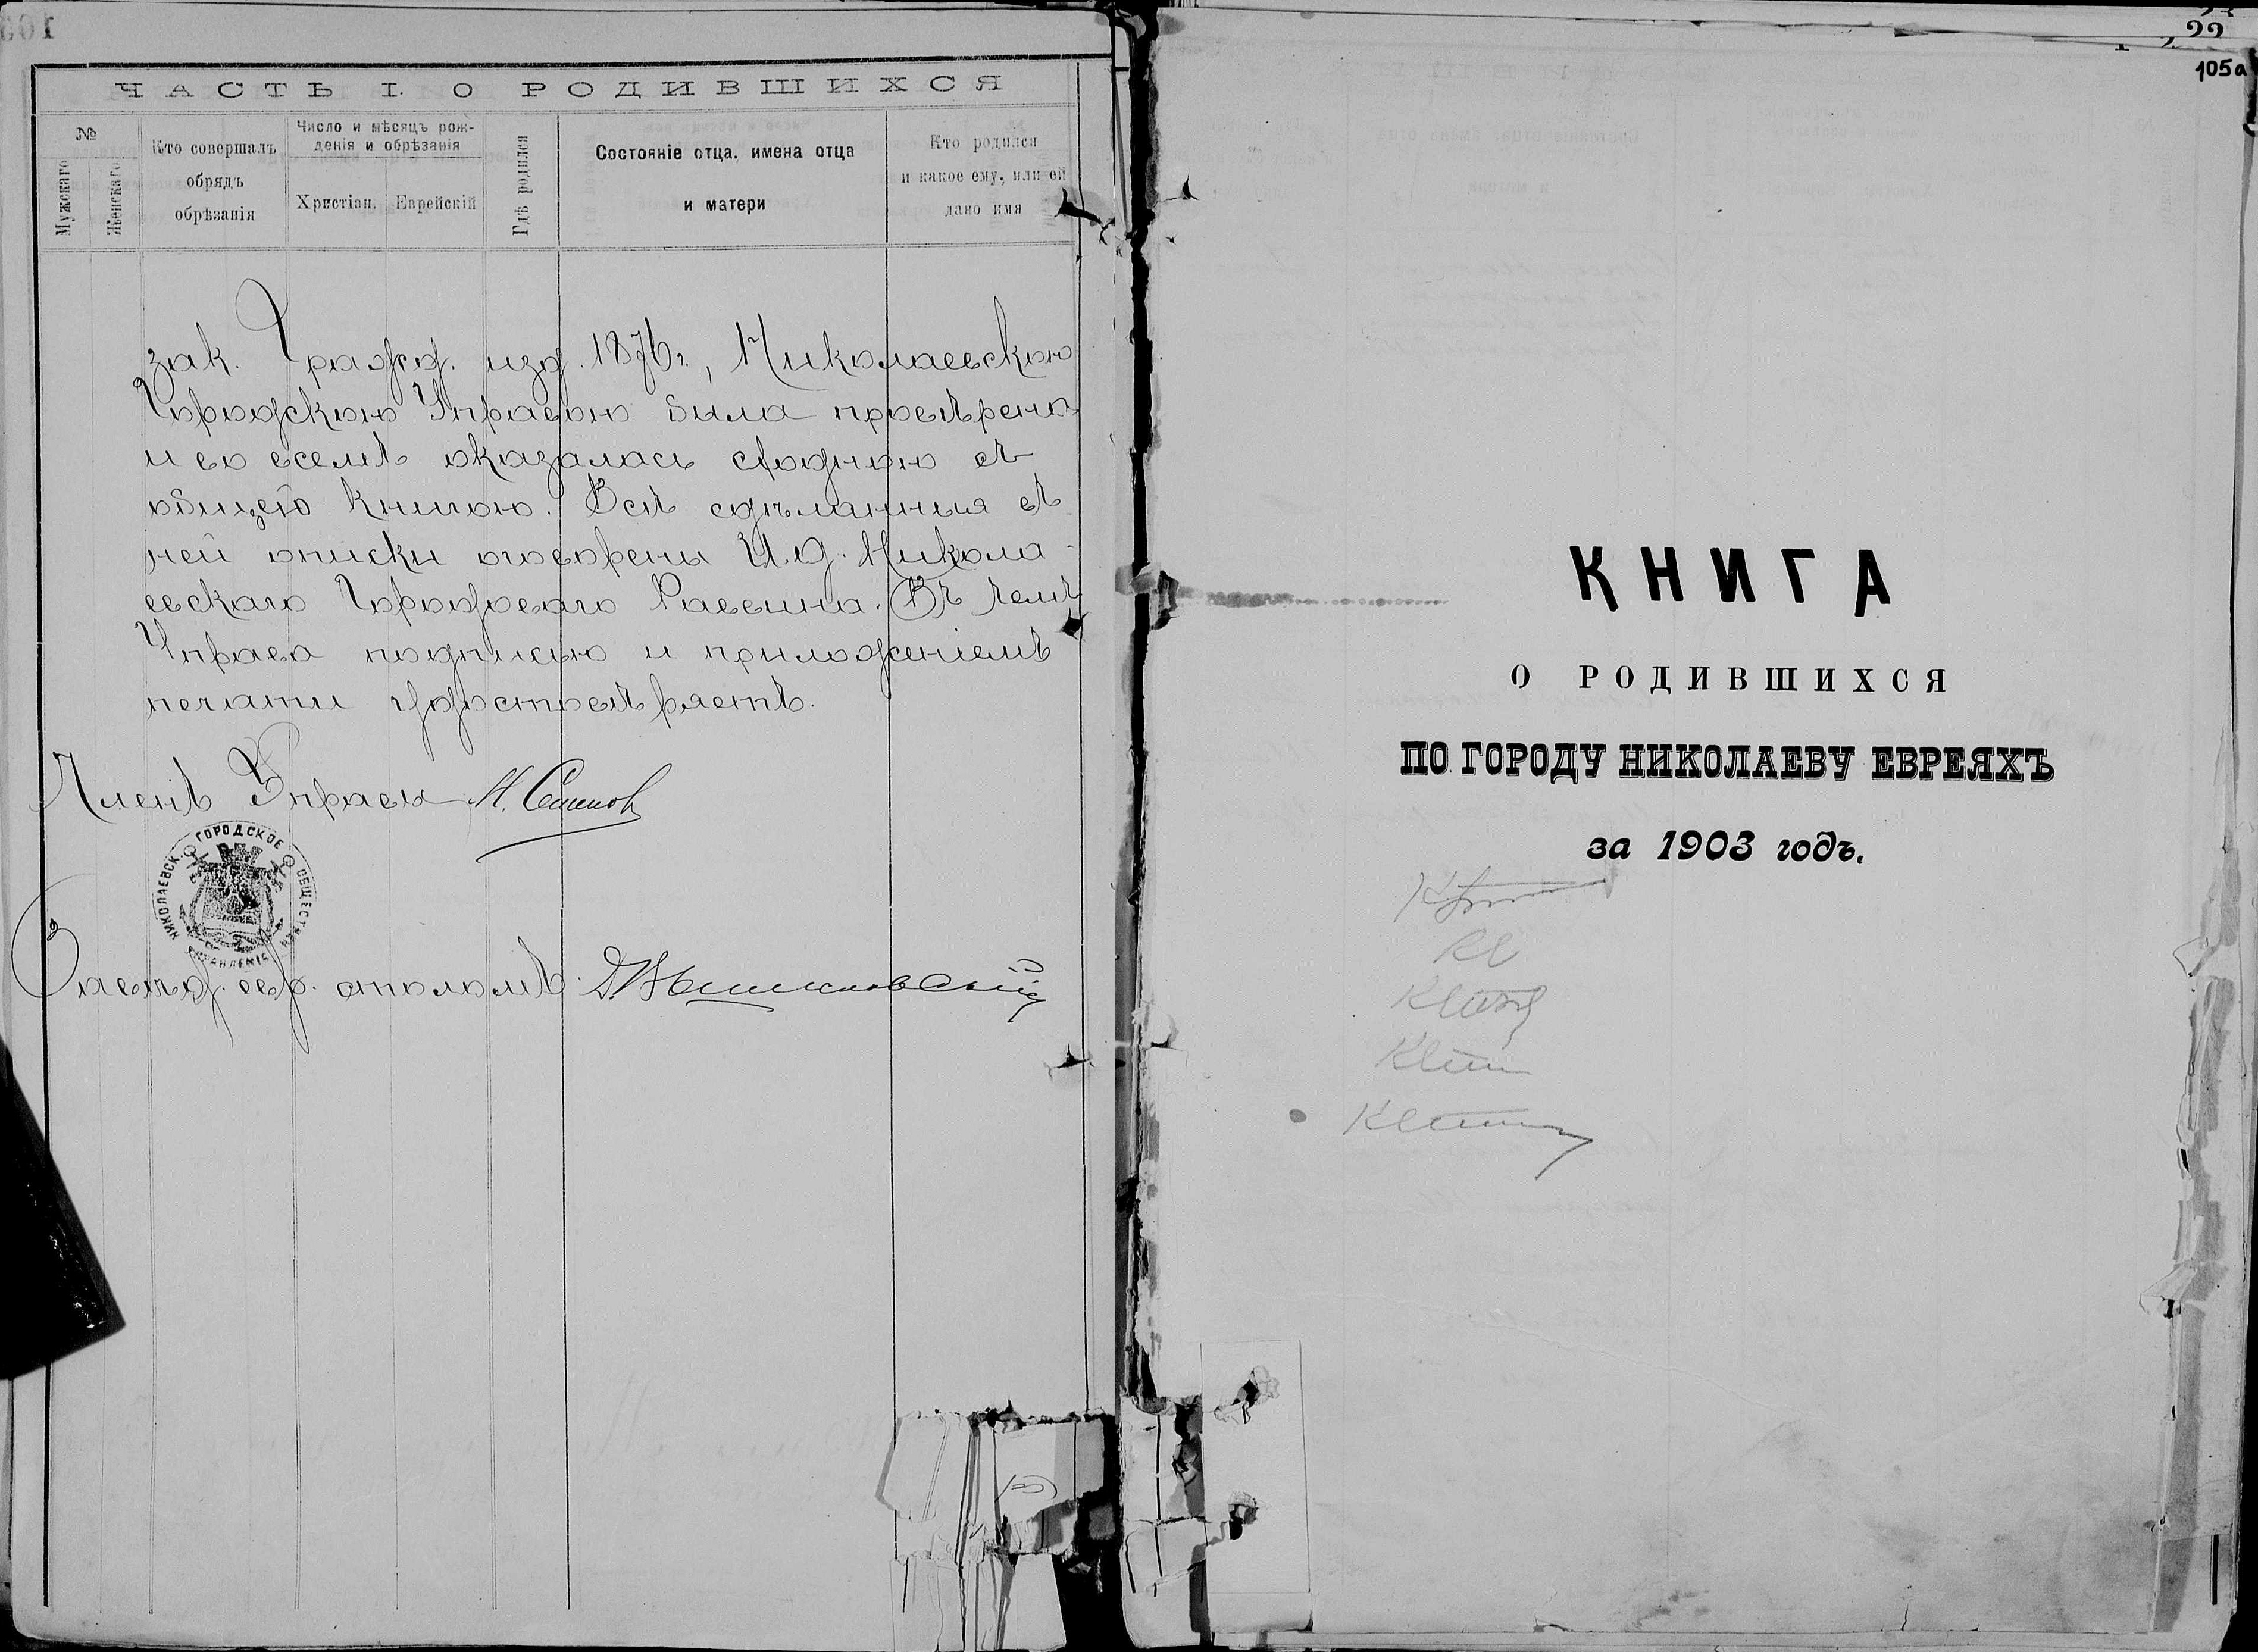 ЧАСТЬ I. О РОДИВШИХСЯ
№
Мужскаго
Женскаго
Кто совершалъ
обрядъ
обрѣзанія
Число и мѣсяцъ рож-
денія и обрѣзанія
Христіан.
Еврейскій
Гдѣ родился
Состояніе отца, имена отца
и матери
Кто родился
и какое ему, или ей
дано имя
зак. Гражд. изд. 1876 г., Николаевскою
Городскою Управою была провѣрена
и во всемъ оказалась сходною съ
общею книгою. Всѣ сдѣланныя въ
ней описки оговорены И. д. Никола-
евскаго Городоваго Раввина. Въ чемъ
Управа подписью и приложеніемъ
печати удостовѣряетъ.
Членъ Управы
НИКОЛАЕВСК. ГОРОДСКОЕ ОБЩЕСТВЕН. УПРАВЛЕНІЕ
Завѣд. евр. столомъ
22
105а
КНИГА
О РОДИВШИХСЯ
ПО ГОРОДУ НИКОЛАЕВУ ЕВРЕЯХЪ
за 1903 годъ.